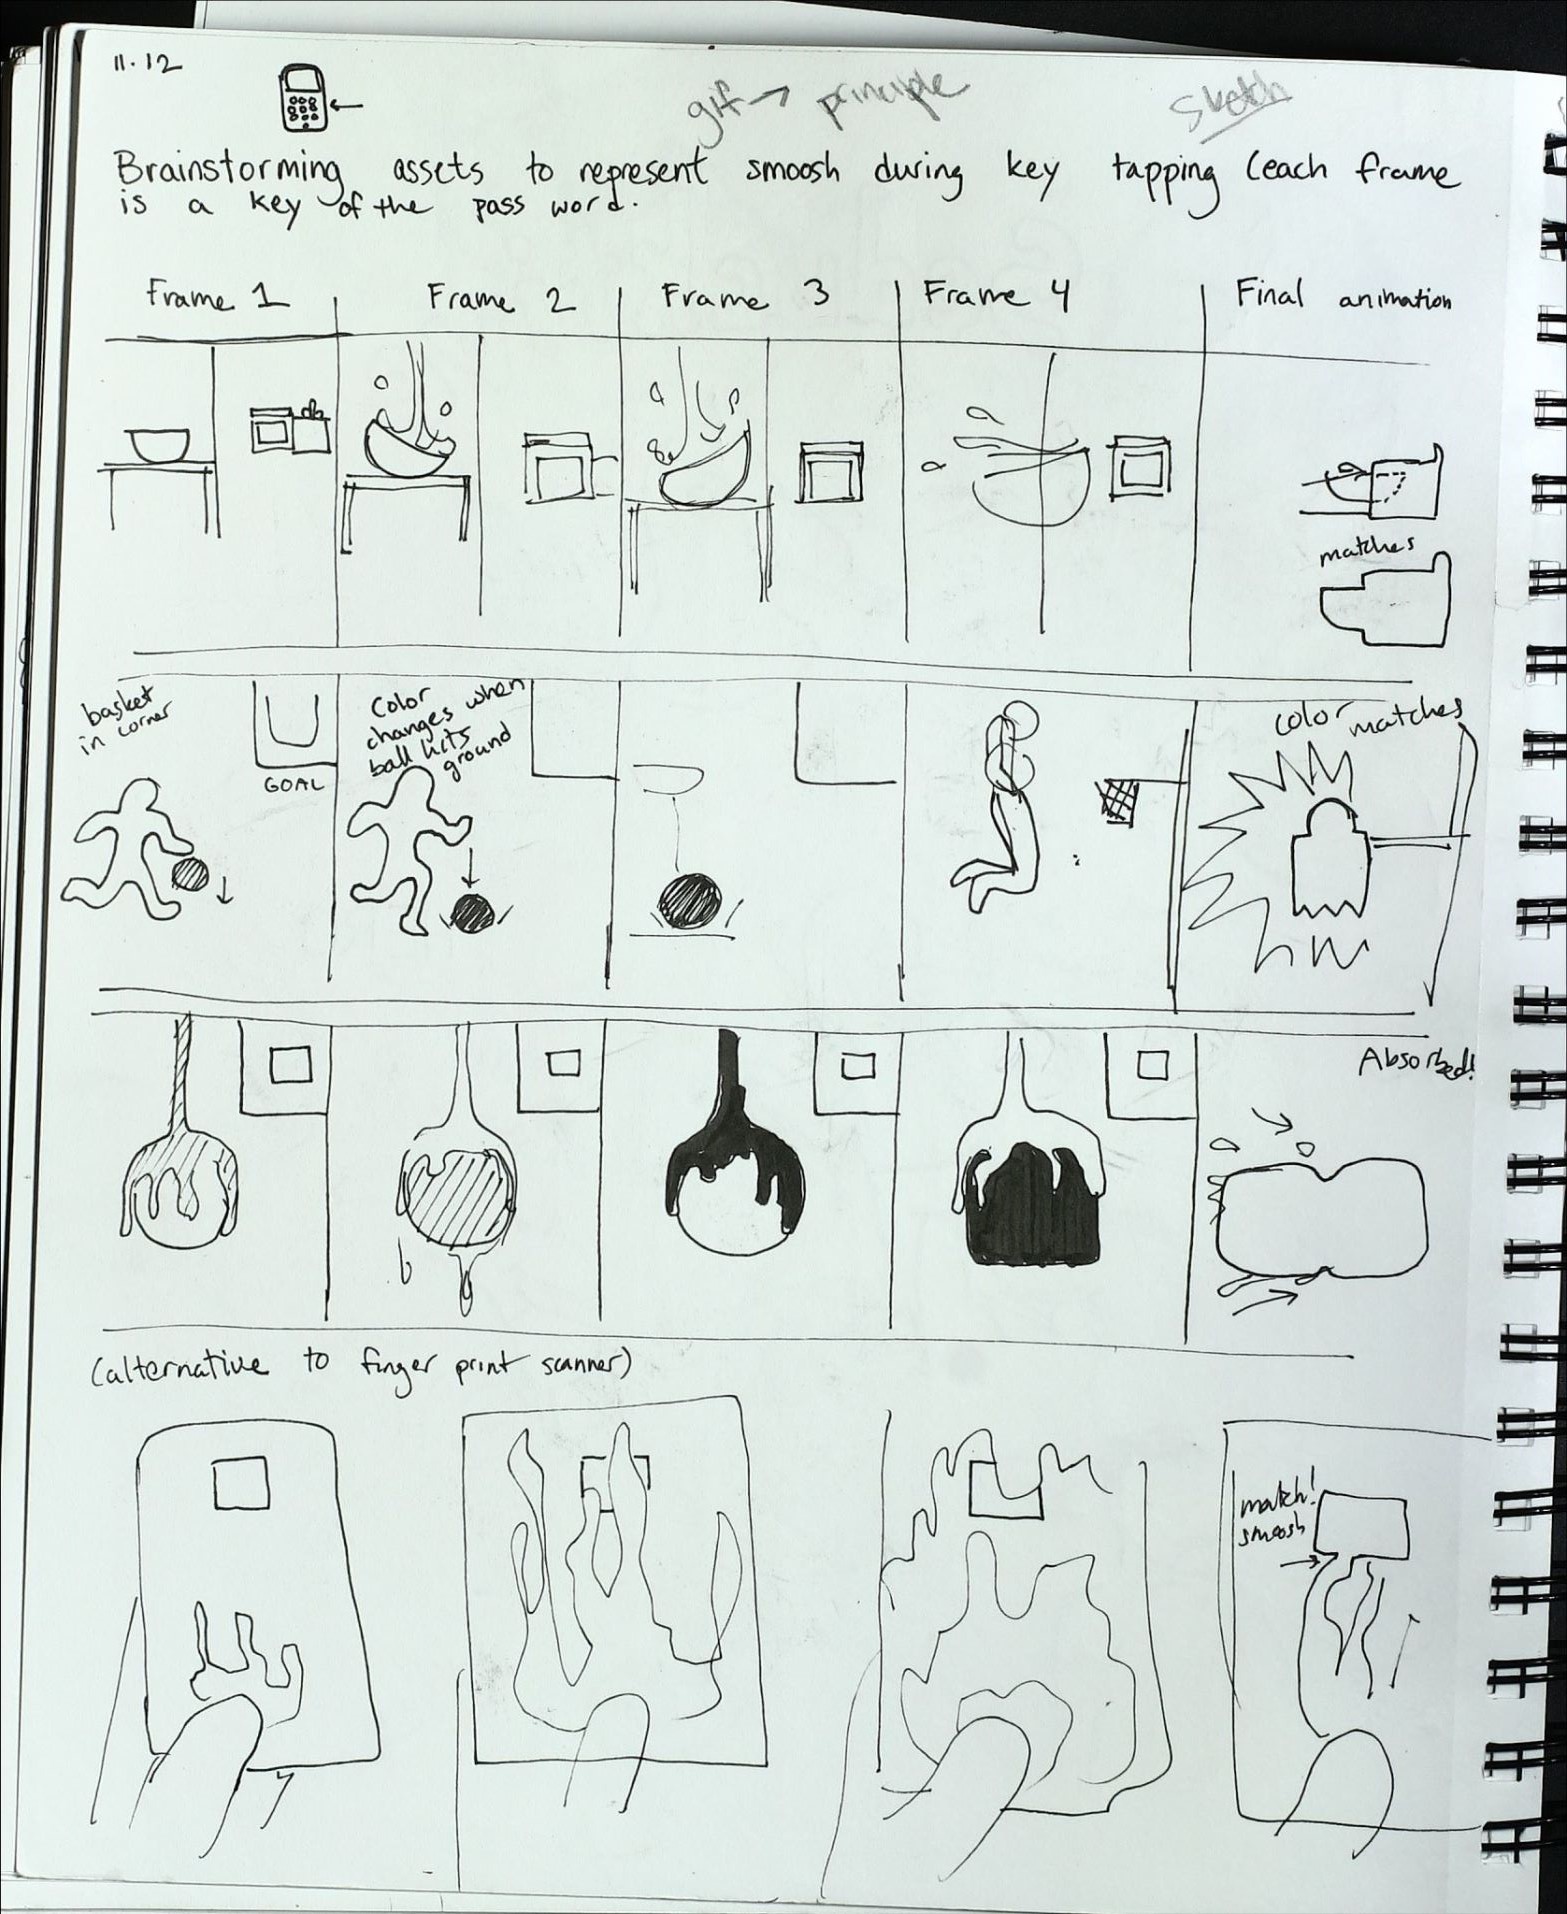 11.12
gif → principle
Sketch
Brainstorming assets to represent smoosh during key tapping (each frame
is a key of the pass word.
Frame 1
Frame 2
Frame 3
Frame 4
Final animation
matches
basket
in corner
GOAL
Color
changes when
ball hits
ground
color matches
Absorbed!
(alternative to finger print scanner)
match!
smoosh